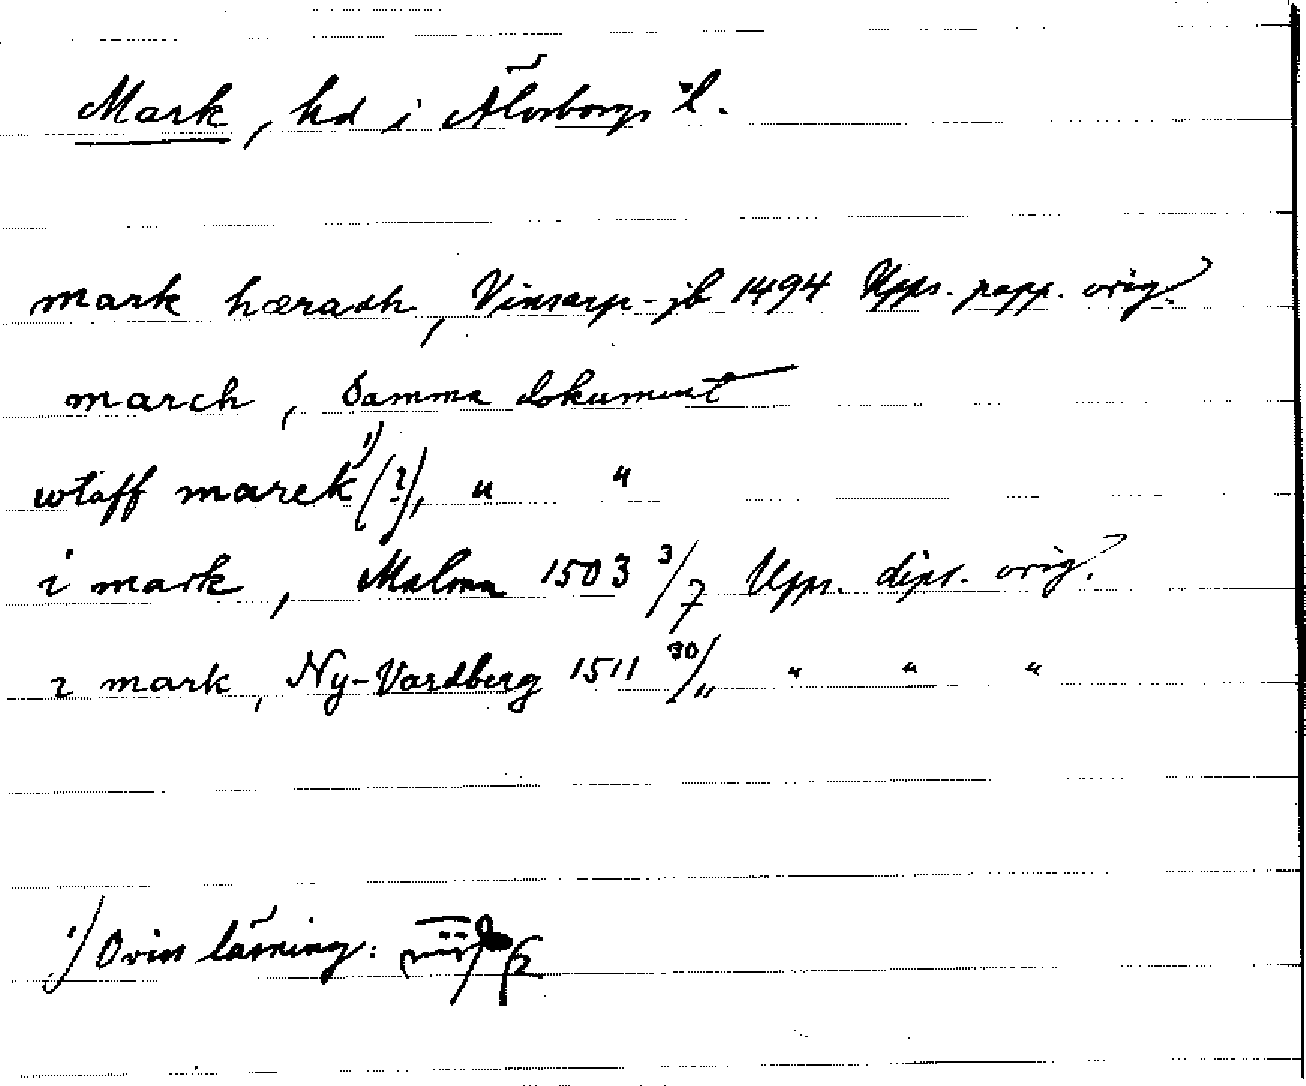 Mark, hd i Älvsborgs l.
mark hæradh, Vinsarp-jb 1494 Upps. papp. orig.
march, Samma dokument
wtaff marck ¹⁾ (?), " "
i mark, 1503 3/7 Upps. dipl. orig.
i mark, Ny-Vardberg 1511 30/11 " " "
1) Oviss läsning: